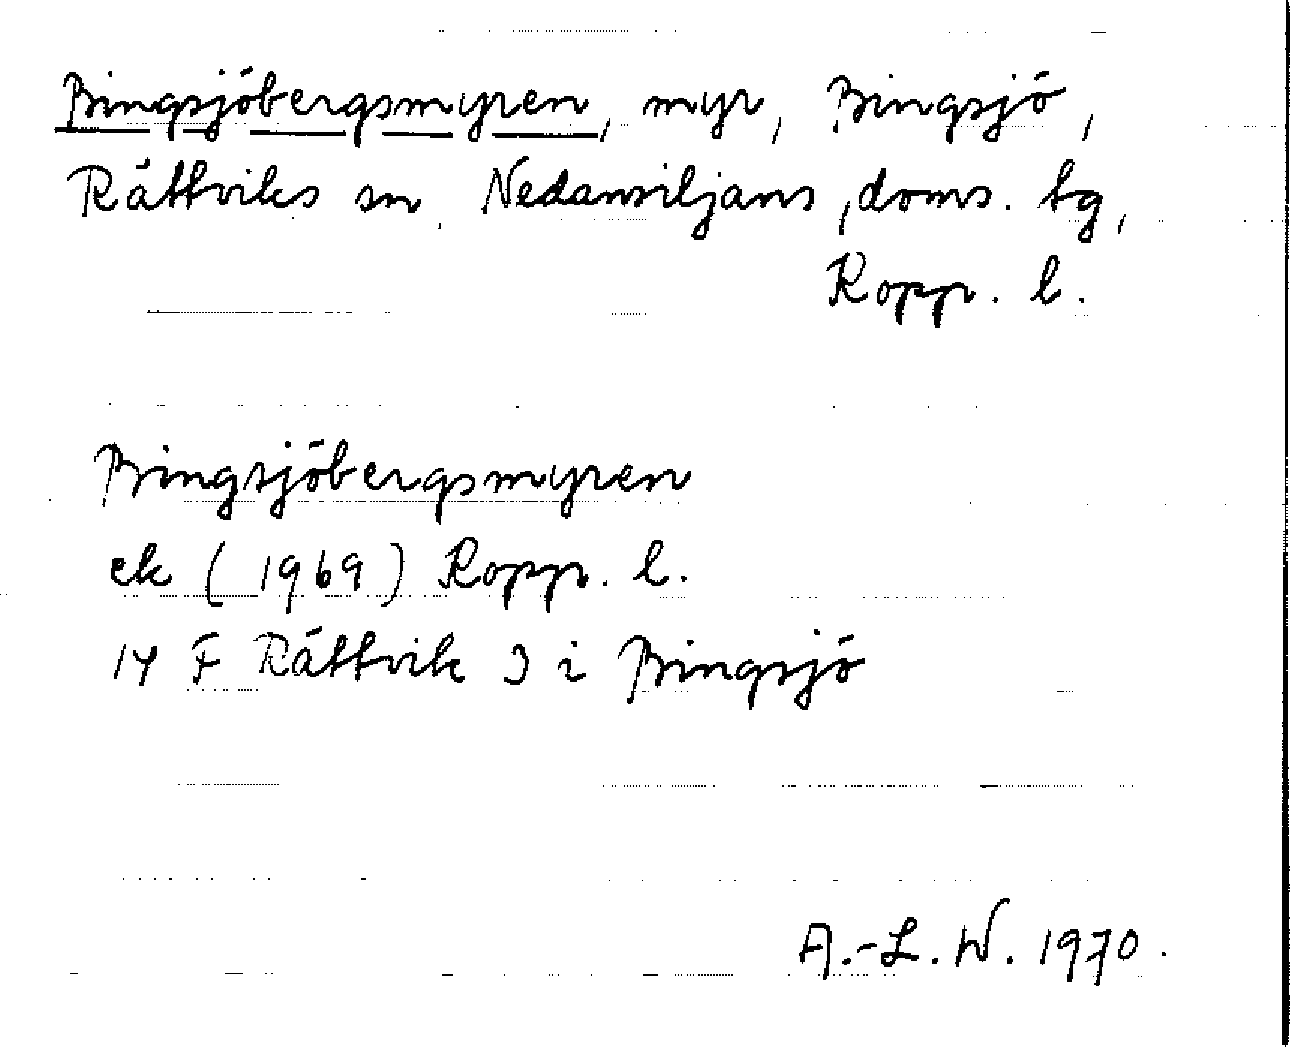 Bingsjöbergsmyren, myr, Bingsjö,
Rättviks sn, Nedansiljans doms. tg,
Kopp. l.
Bingsjöbergsmyren
ek (1969) Kopp. l.
14 F Rättvik 3 i Bingsjö
A.-L. W. 1970.